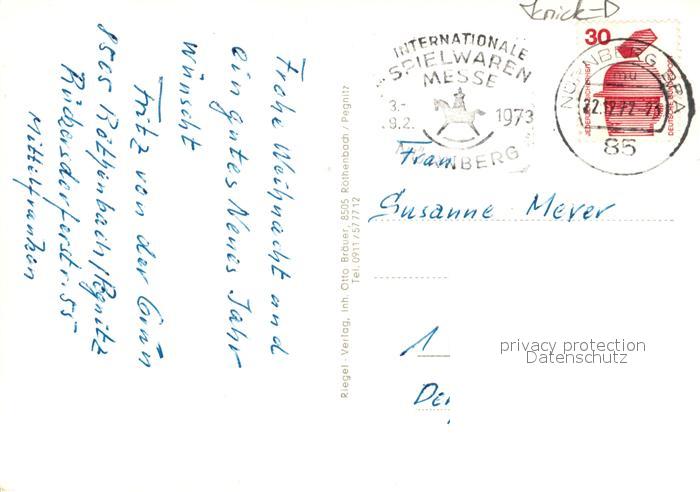 Frohe Weihnacht und
ein gutes Neues Jahr
wünscht
Fritz von der Grün
8505 Röthenbach/Pegnitz
Mittelfranken
Riegel-Verlag, Inh. Otto Bräuer, 8505 Röthenbach / Pegnitz
Tel. 0911/577712
Knick-D
INTERNATIONALE
SPIELWAREN
MESSE
3.-
9.2.
1973
NÜRNBERG
30
NÜRNBERG BPA
mu
22.12.72-
85
JEDERZEIT SICHERHEIT
Frau
Susanne Meyer
1
privacy protection
Datenschutz